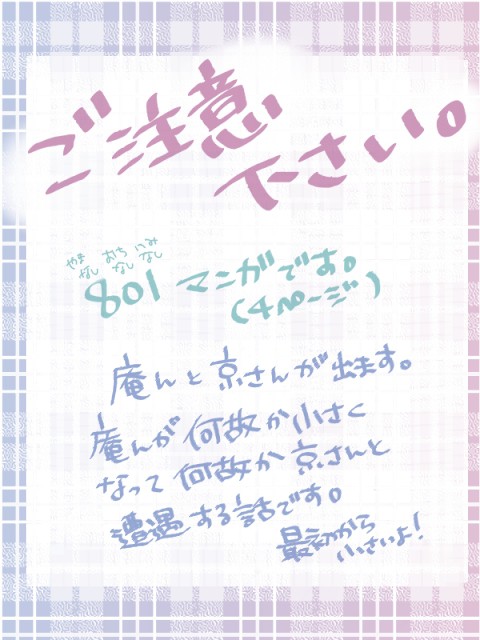 ご注意
下さい。
やま おち いみ
なし なし なし
801 マンガです。
(4ページ)
庵んと京さんが出ます。
庵んが何故か小さく
なって何故か京さんと
遭遇する話です。
最初から
小さいよ!